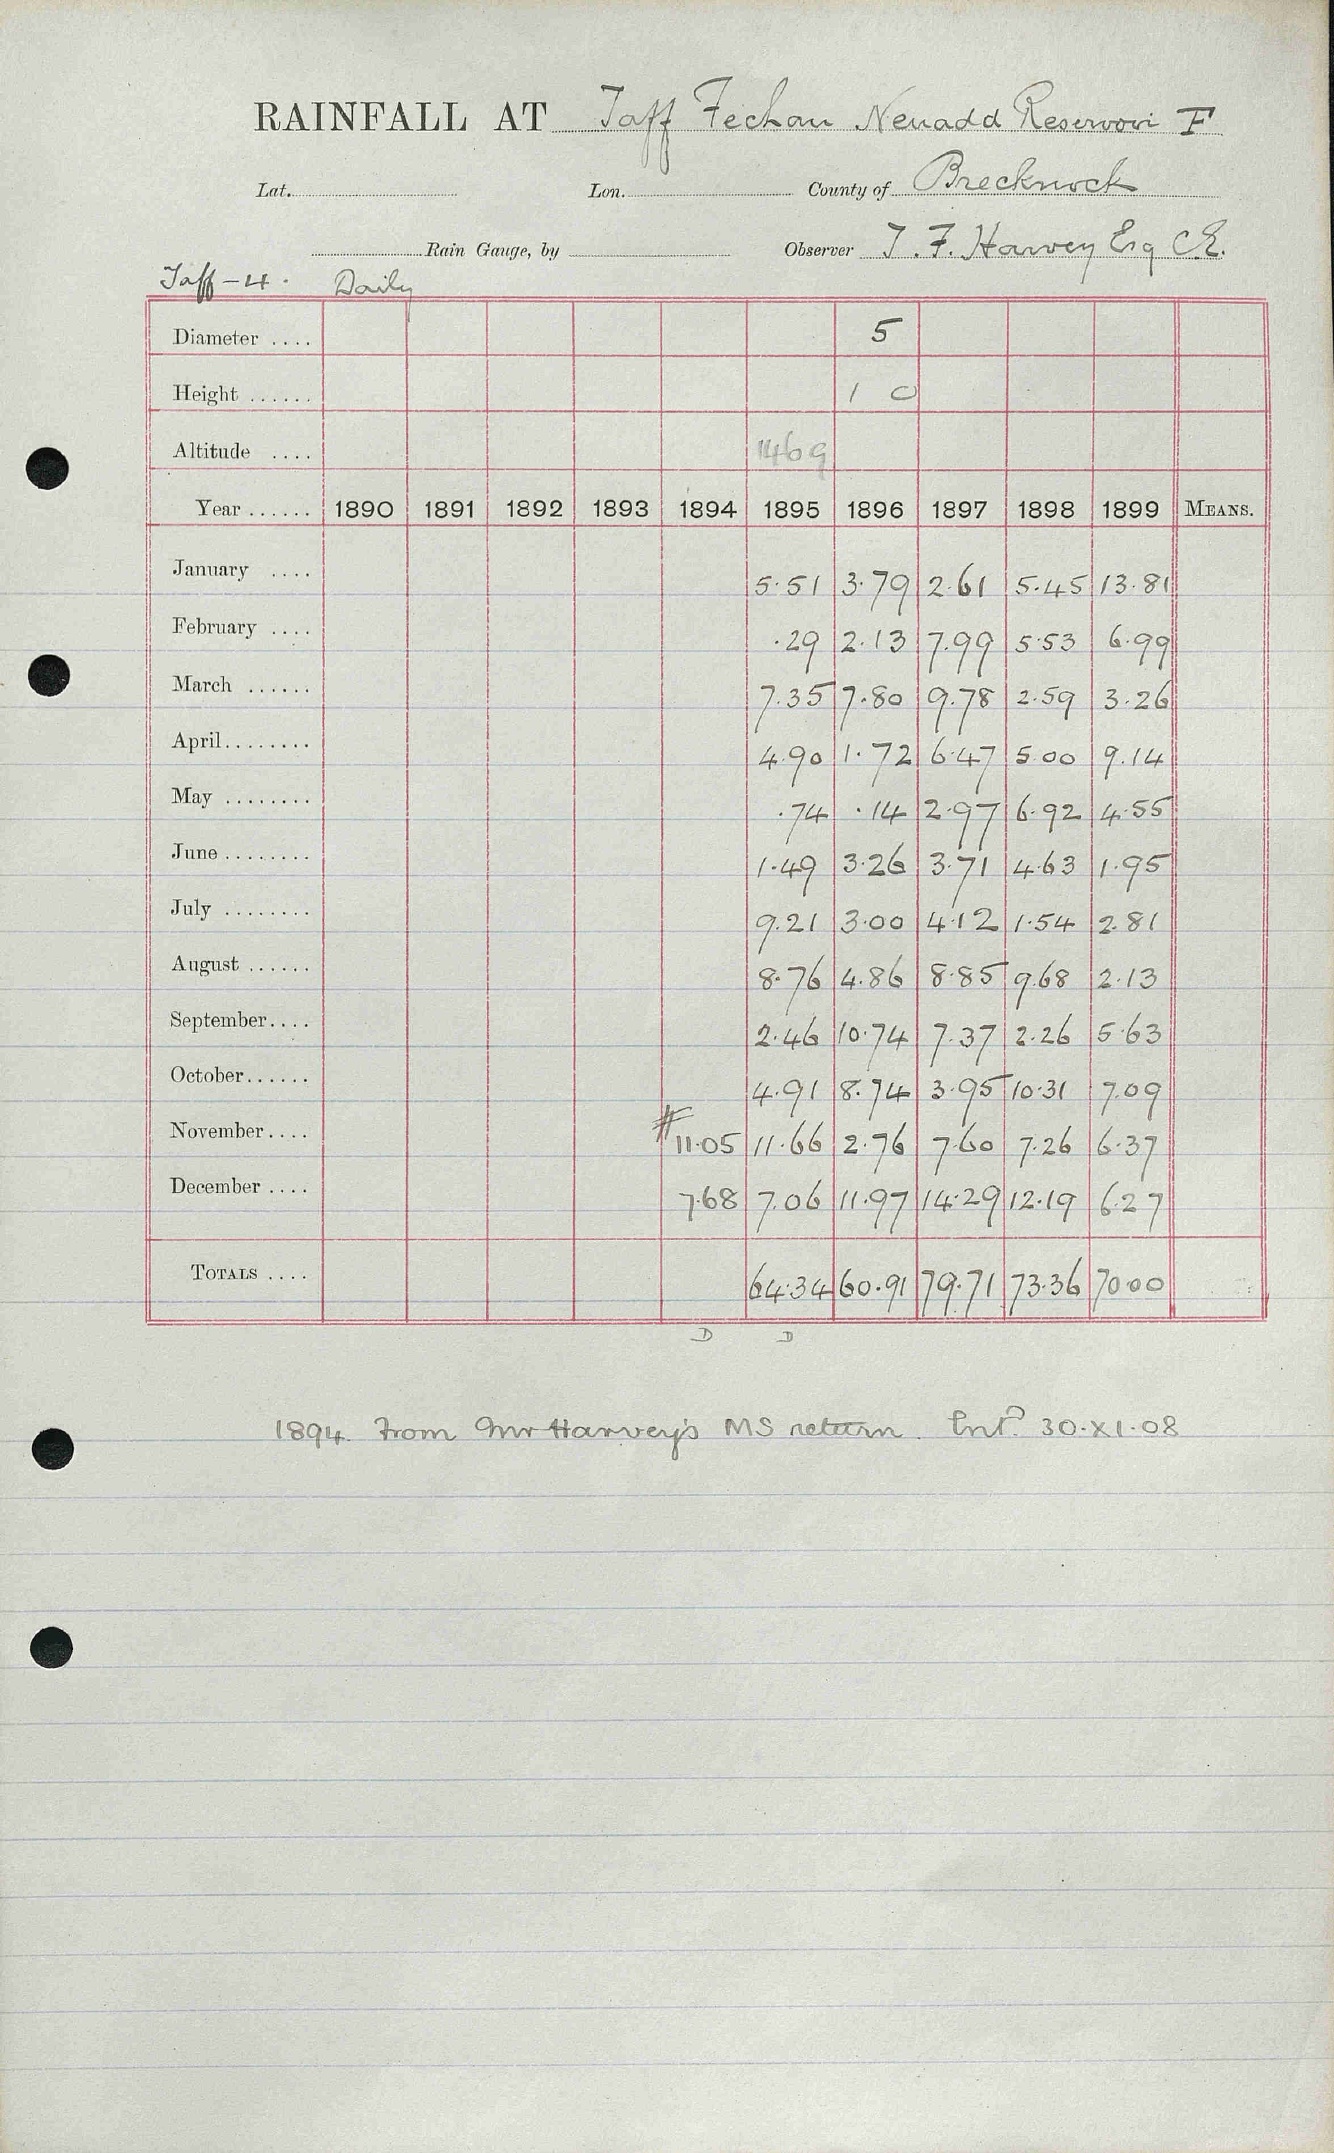 RAINFALL AT Taff Fechan Neuadd Reservoir F
Lat. Lon. County of Brecknock
Rain Gauge, by Observer T. F. Harvey Esq C.E.
Taff-4. Daily
Diameter .... 5
Height ...... 1 0
Altitude .... 1469
Year ...... 1890 1891 1892 1893 1894 1895 1896 1897 1898 1899 MEANS.
January .... 5.51 3.79 2.61 5.45 13.81
February .... .29 2.13 7.99 5.53 6.99
March ...... 7.35 7.80 9.78 2.59 3.26
April........ 4.90 1.72 6.47 5.00 9.14
May ........ .74 .14 2.97 6.92 4.55
June ........ 1.49 3.26 3.71 4.63 1.95
July ........ 9.21 3.00 4.12 1.54 2.81
August ...... 8.76 4.86 8.85 9.68 2.13
September.... 2.46 10.74 7.37 2.26 5.63
October...... 4.91 8.74 3.95 10.31 7.09
November.... # 11.05 11.66 2.76 7.60 7.26 6.37
December .... 7.68 7.06 11.97 14.29 12.19 6.27
TOTALS .... 64.34 60.91 79.71 73.36 70.00
D D
1894. From Mr Harvey's MS return. Entd 30.XI.08